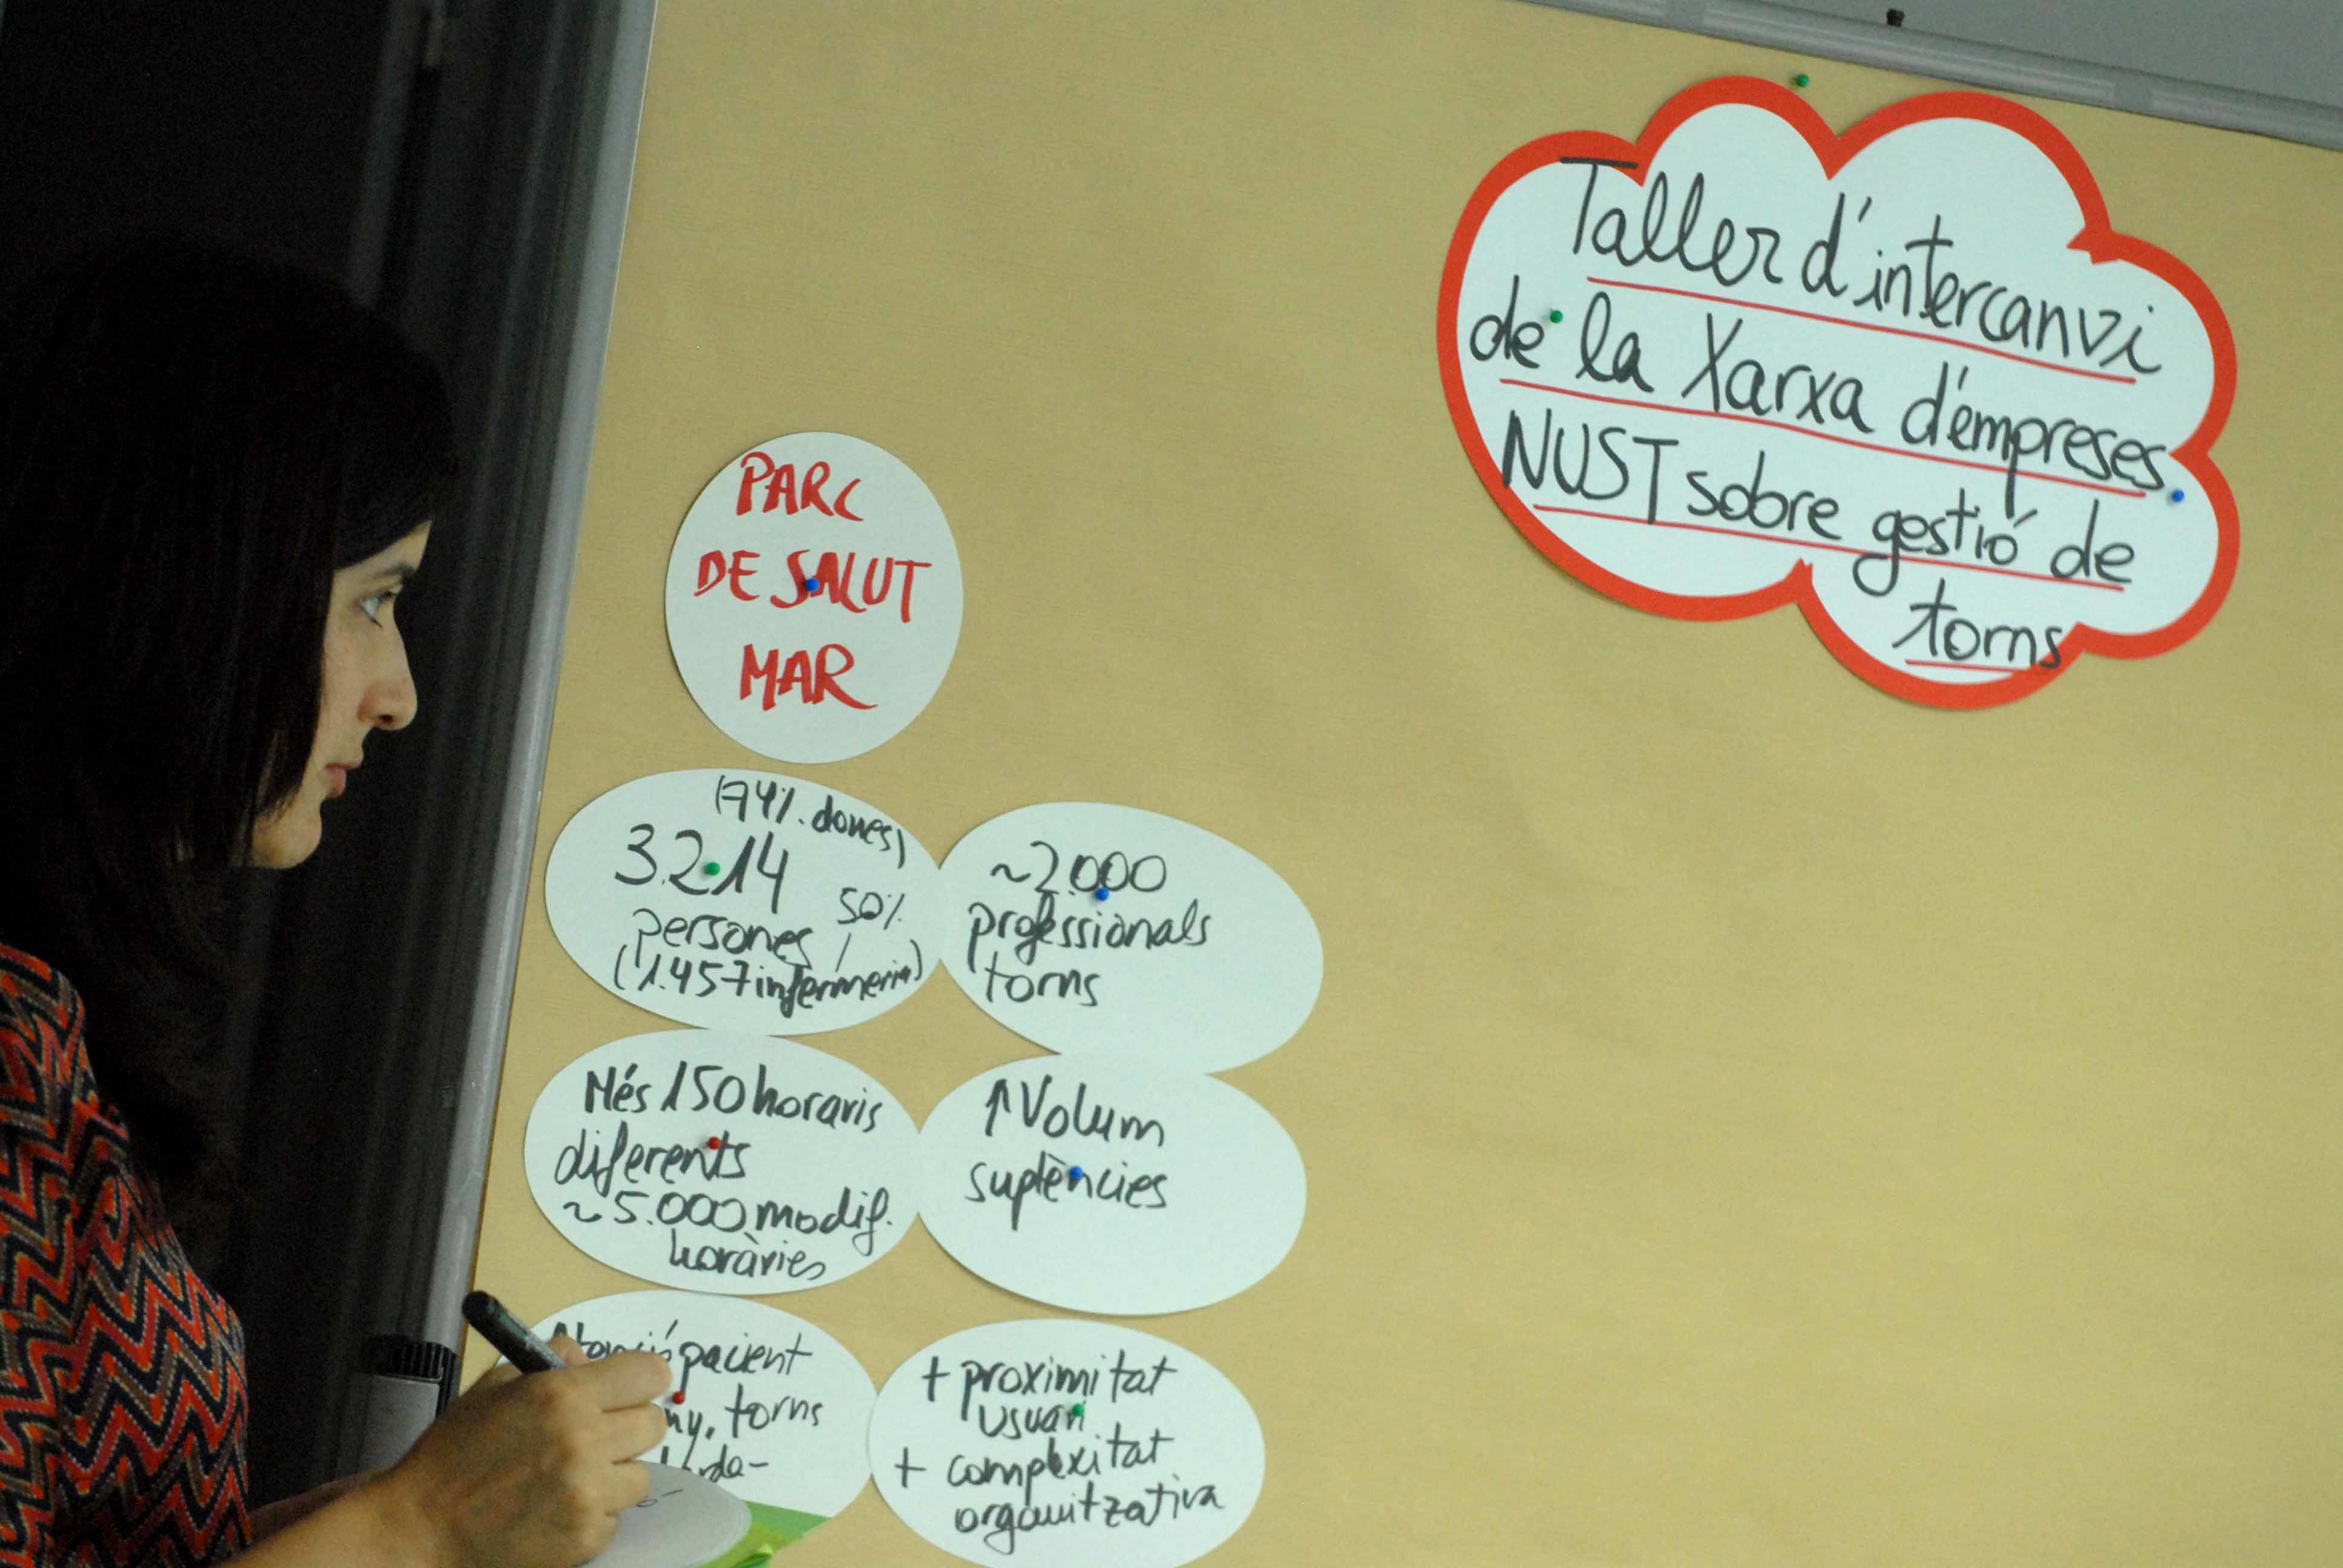 Taller d'intercanvi
de la Xarxa d'empreses
NUST sobre gestió de
torns
PARC
DE SALUT
MAR
(74% dones)
3.214
persones / 50%
(1.457 infermeria)
~2.000
professionals
torns
Més 150 horaris
diferents
~5.000 modif.
horàries
↑Volum
suplències
pacient
torns
+ proximitat
usuari
+ complexitat
organitzativa